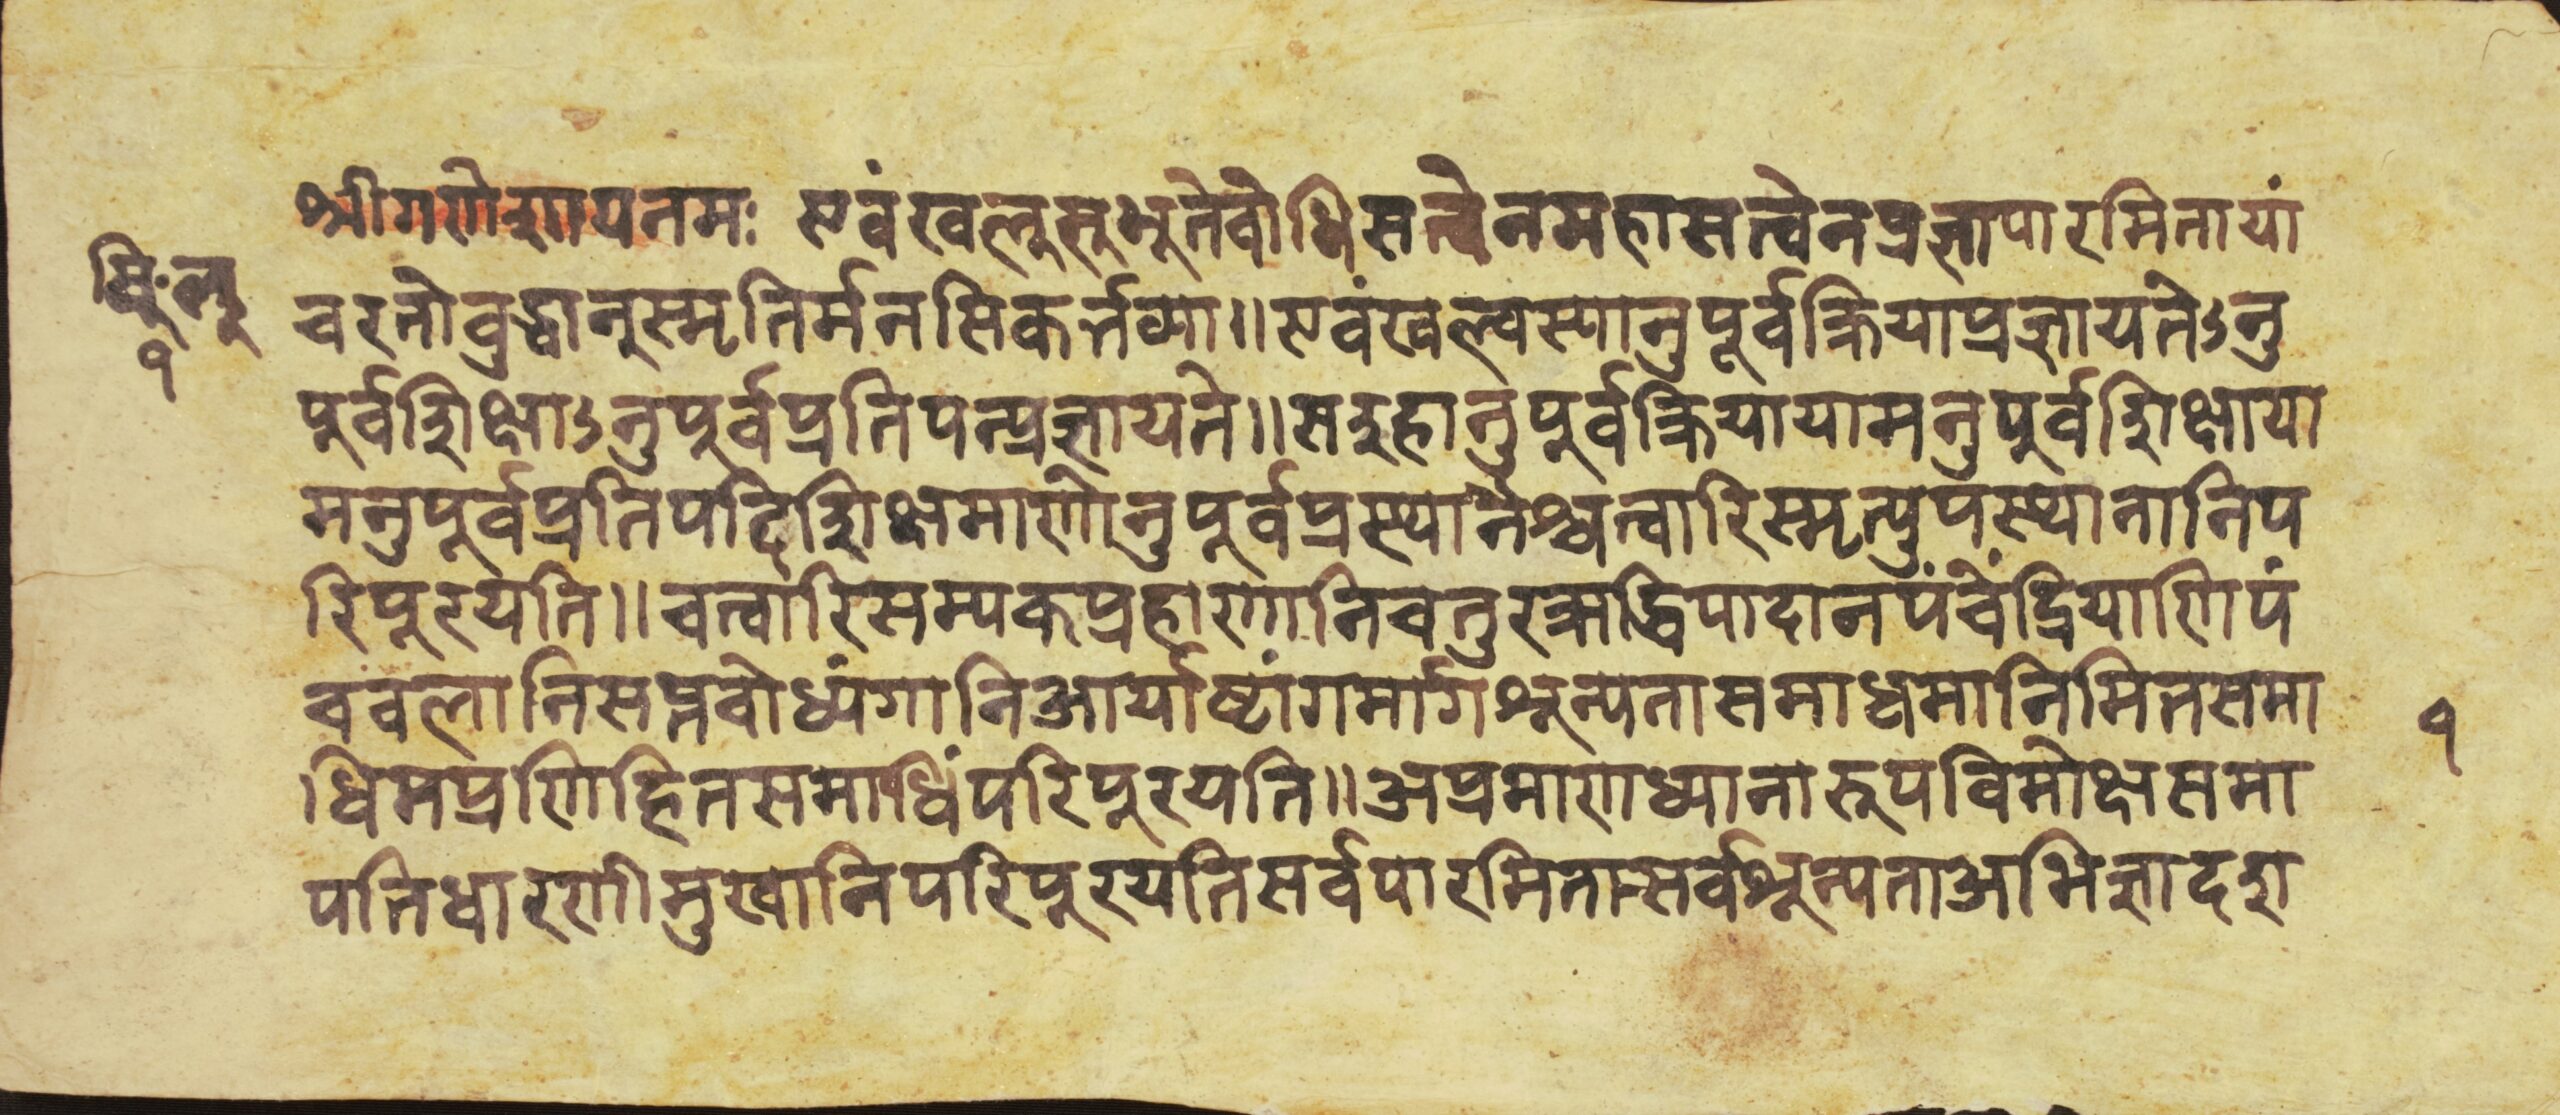 श्रीगणेशायनमः एवंखलुसुभूतेबोधिसत्त्वेनमहासत्त्वेनप्रज्ञापारमितायां
चरतोबुद्धानुस्मृतिर्मनसिकर्त्तव्या॥एवंखल्वस्यानुपूर्वक्रियाप्रज्ञायतेऽनु
पूर्वशिक्षाऽनुपूर्वप्रतिपत्प्रज्ञायते॥सइहानुपूर्वक्रियायामनुपूर्वशिक्षाया
मनुपूर्वप्रतिपदिशिक्षमाणोनुपूर्वप्रस्थानैश्चत्वारिस्मृत्युपस्थानानिप
रिपूरयति॥चत्वारिसम्यकप्रहाणानिचतुरऋद्धिपादानपंचेंद्रियाणिपं
चबलानिसप्तबोध्यंगानिआर्याष्टांगमार्गशून्यतासमाधिमानिमितसमा
धिमप्रणिहितसमाधिंपरिपूरयति॥अप्रमाणध्यानारूपविमोक्षसमा
पतिधारणीमुखानिपरिपूरयतिसर्वपारमितासर्वशून्यताअभिज्ञादश
१
१